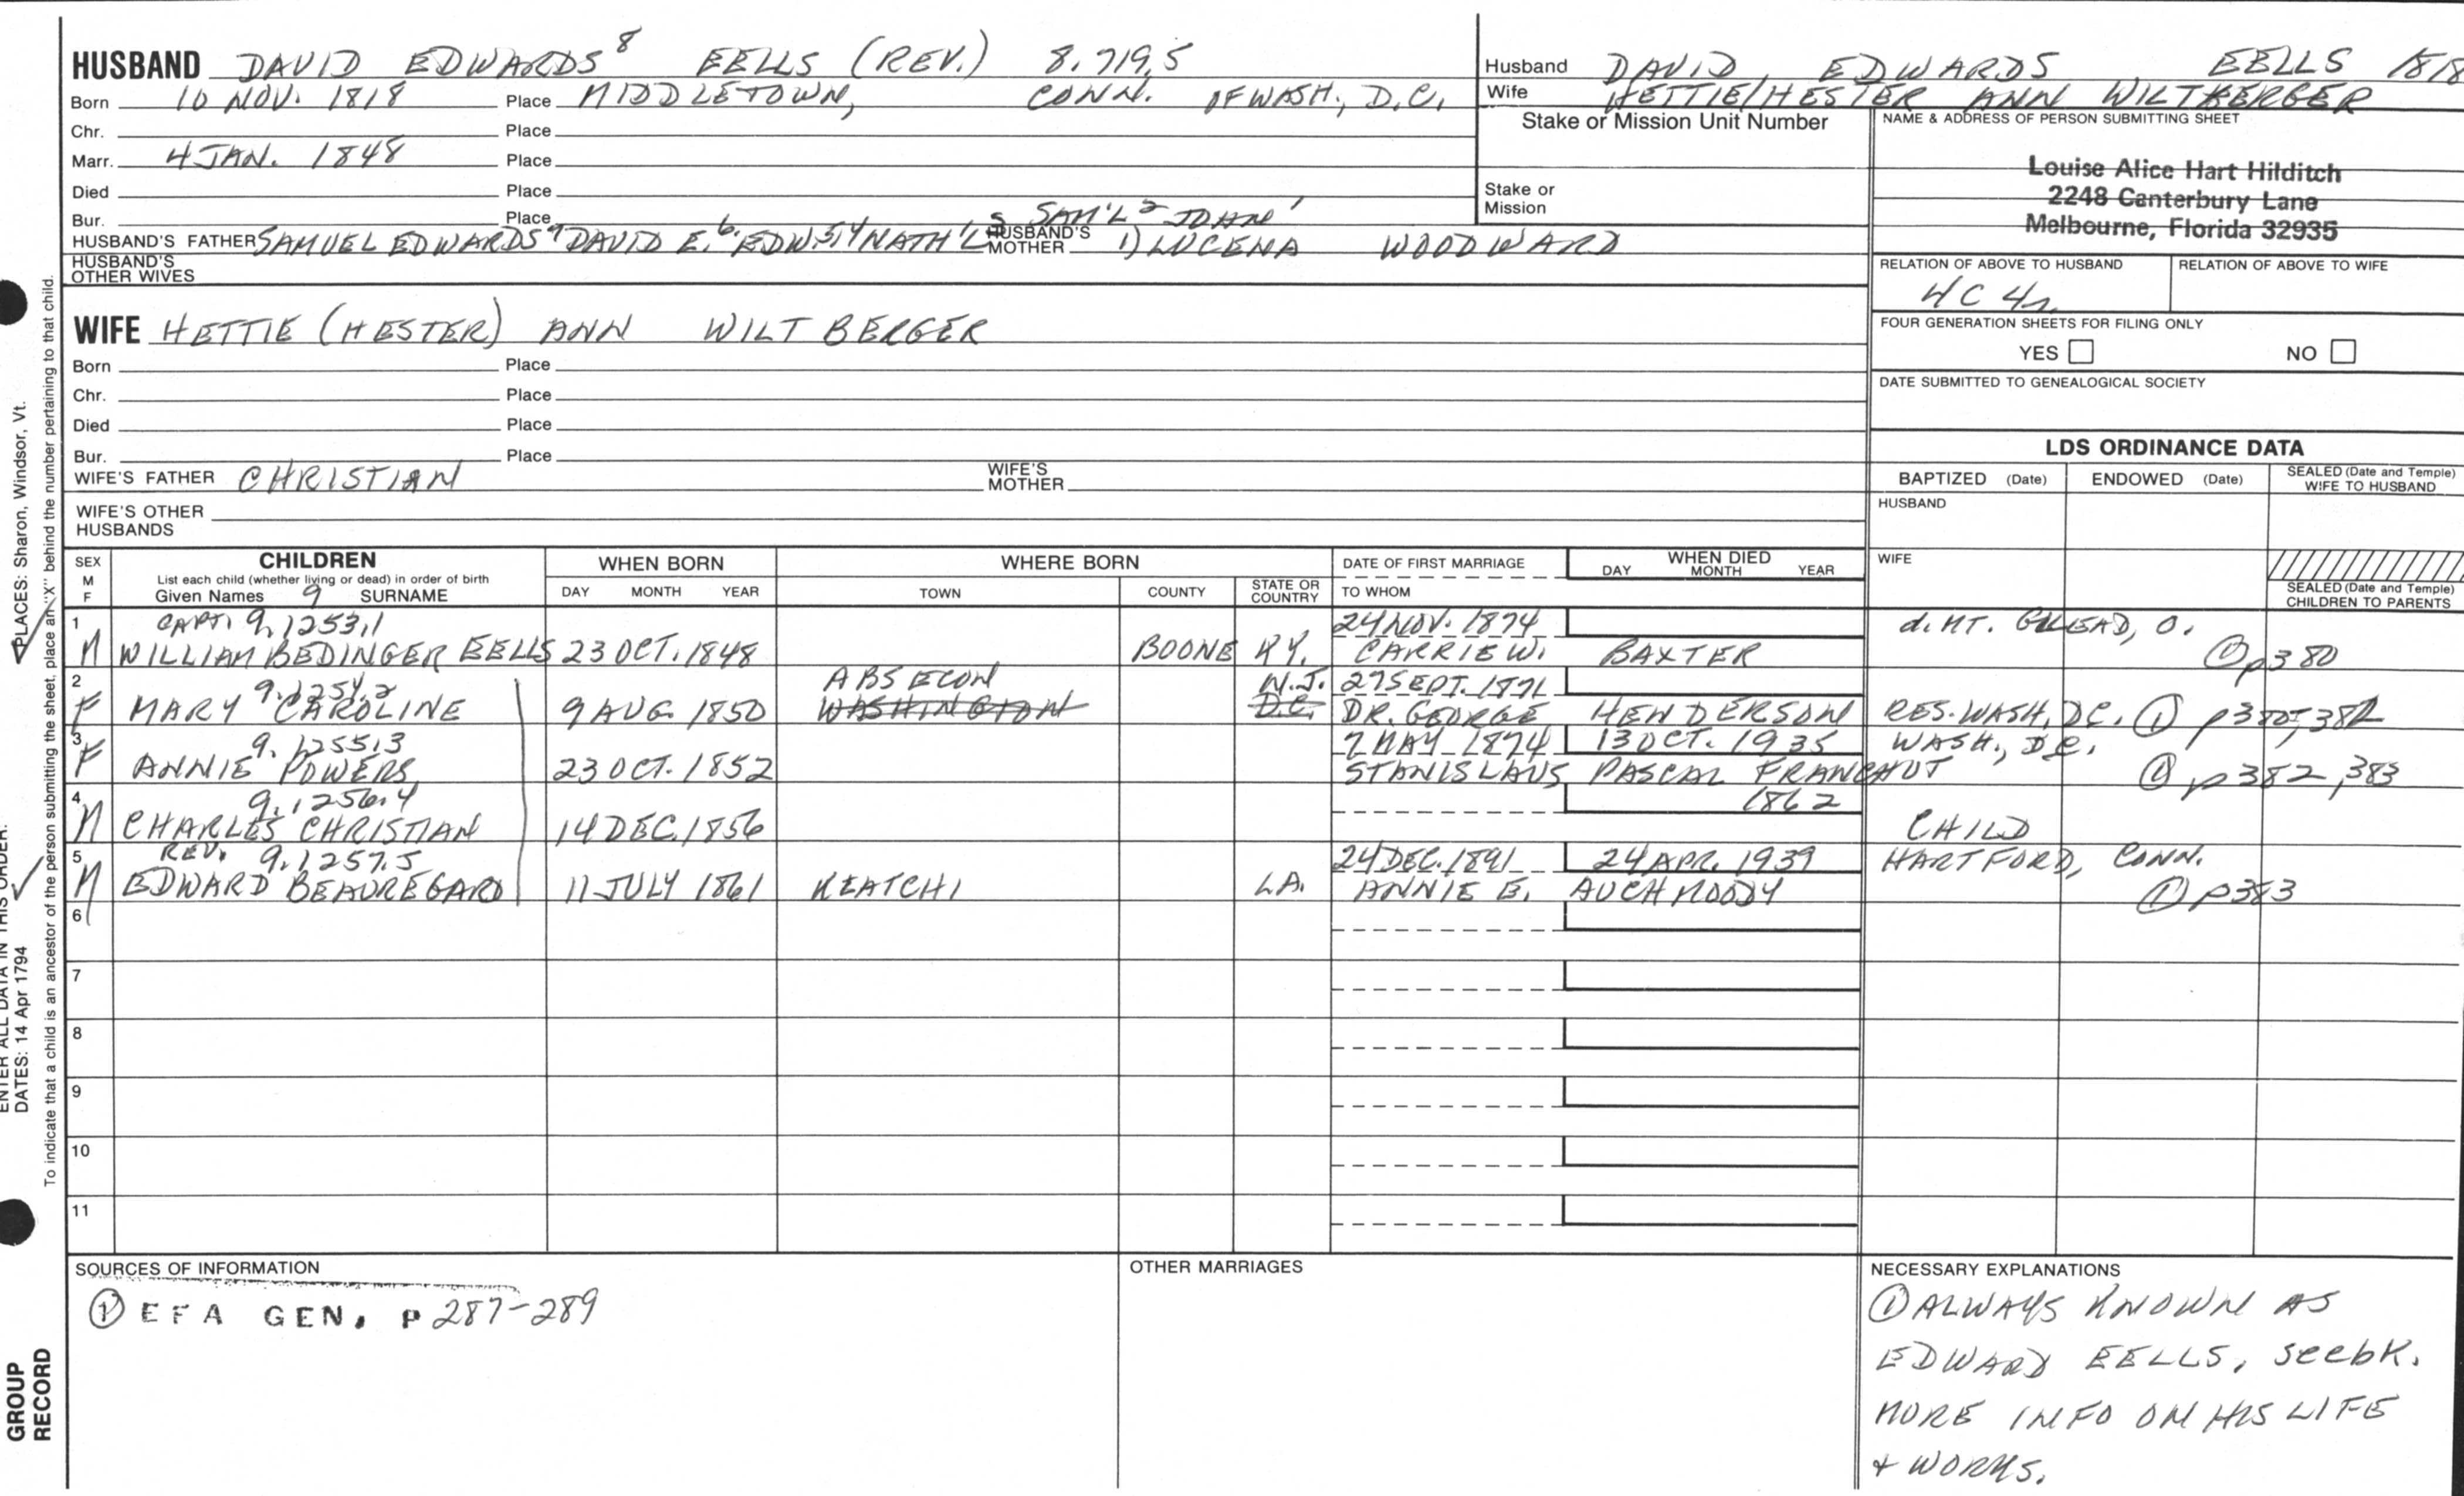 HUSBAND DAVID EDWARDS 8 EELLS (REV.) 8.719.5
Born 10 NOV. 1818 Place MIDDLETOWN, CONN. OF WASH., D.C.
Chr. Place
Marr. 4 JAN. 1848 Place
Died Place
Bur. Place
HUSBAND'S FATHER SAMUEL EDWARDS 7 DAVID E. 6 EDW 5,4 NATH'L 3 SAM'L 2 JOHN 1 HUSBAND'S MOTHER 1) LUCENA WOODWARD
HUSBAND'S OTHER WIVES
Husband DAVID EDWARDS EELLS 1818
Wife HETTIE/HESTER ANN WILTBERGER
Stake or Mission Unit Number
Stake or Mission
NAME & ADDRESS OF PERSON SUBMITTING SHEET
Louise Alice Hart Hilditch
2248 Canterbury Lane
Melbourne, Florida 32935
RELATION OF ABOVE TO HUSBAND RELATION OF ABOVE TO WIFE
4C 4r
FOUR GENERATION SHEETS FOR FILING ONLY
YES NO
DATE SUBMITTED TO GENEALOGICAL SOCIETY
WIFE HETTIE (HESTER) ANN WILTBERGER
Born Place
Chr. Place
Died Place
Bur. Place
WIFE'S FATHER CHRISTIAN WIFE'S MOTHER
WIFE'S OTHER HUSBANDS
LDS ORDINANCE DATA
BAPTIZED (Date) ENDOWED (Date) SEALED (Date and Temple) WIFE TO HUSBAND
HUSBAND
WIFE
SEALED (Date and Temple) CHILDREN TO PARENTS
SEX M F
CHILDREN
List each child (whether living or dead) in order of birth
Given Names 9 SURNAME
WHEN BORN
DAY MONTH YEAR
WHERE BORN
TOWN COUNTY STATE OR COUNTRY
DATE OF FIRST MARRIAGE
TO WHOM
WHEN DIED
DAY MONTH YEAR
1 CAPT. 9.1253.1 24 NOV. 1874 d. MT. GILEAD, O.
M WILLIAM BEDINGER EELLS 23 OCT. 1848 BOONE KY. CARRIE W. BAXTER ① p380
2 9.1254.2 ABSECON N.J. 27 SEPT. 1871
F MARY CAROLINE 9 AUG. 1850 WASHINGTON D.C. DR. GEORGE HENDERSON RES. WASH, D.C. ① p380, 382
3 9.1255.3 7 MAY 1874 13 OCT. 1935 WASH., D.C.
F ANNIE POWERS 23 OCT. 1852 STANISLAUS PASCAL FRANCHOT ① p382, 383
4 9.1256.4 1862
M CHARLES CHRISTIAN 14 DEC. 1856 CHILD
5 REV. 9.1257.5 24 DEC. 1891 24 APR. 1939 HARTFORD, CONN.
M EDWARD BEAUREGARD 11 JULY 1861 KEATCHI LA. ANNIE B. AUCHMOODY ① p383
6
7
8
9
10
11
SOURCES OF INFORMATION
① EFA GEN. P 287-289
OTHER MARRIAGES
NECESSARY EXPLANATIONS
① ALWAYS KNOWN AS
EDWARD EELLS, see bk.
MORE INFO ON HIS LIFE
+ WORKS.
ENTER ALL DATA IN THIS ORDER:
DATES: 14 Apr 1794
PLACES: Sharon, Windsor, Vt.
To indicate that a child is an ancestor of the person submitting the sheet, place an "X" behind the number pertaining to that child.
GROUP
RECORD